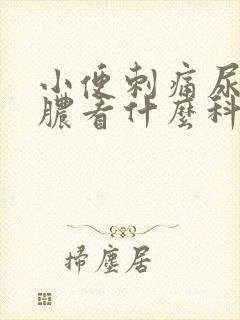 小便刺痛尿
膿看什麼科
掃塵居